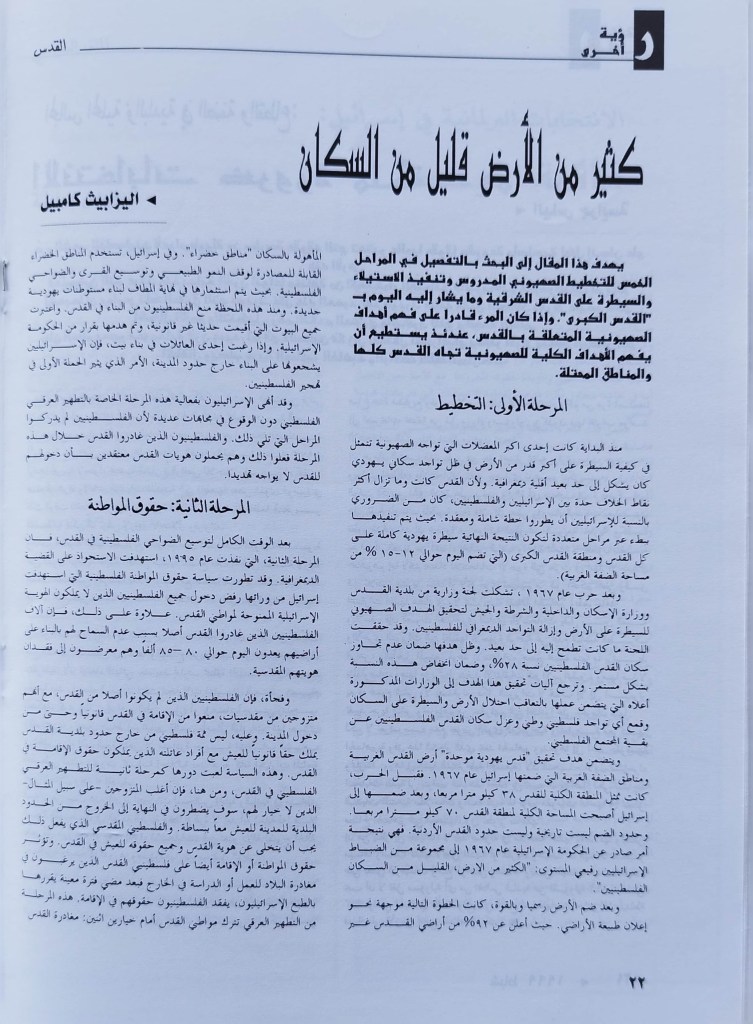 رؤية أخرى
القدس
كثير من الأرض قليل من السكان
◄ اليزابيث كامبيل
يهدف هذا المقال إلى البحث بالتفصيل في المراحل
الخمس للتخطيط الصهيوني المدروس وتنفيذ الاستيلاء
والسيطرة على القدس الشرقية وما يشار إليه اليوم بـ
"القدس الكبرى". وإذا كان المرء قادرا على فهم أهداف
الصهيونية المتعلقة بالقدس، عندئذ يستطيع أن
يفهم الأهداف الكلية للصهيونية تجاه القدس كلها
والمناطق المحتلة.
المرحلة الأولى: التخطيط
منذ البداية كانت إحدى اكبر المعضلات التي تواجه الصهيونية تتمثل
في كيفية السيطرة على أكبر قدر من الأرض في ظل تواجد سكاني يهودي
كان يشكل إلى حد بعيد أقلية ديمغرافية. ولأن القدس كانت وما تزال أكثر
نقاط الخلاف حدة بين الإسرائيليين والفلسطينيين، كان من الضروري
بالنسبة للإسرائيليين أن يطوروا خطة شاملة ومعقدة. بحيث يتم تنفيذها
ببطء عبر مراحل متعددة لتكون النتيجة النهائية سيطرة يهودية كاملة على
كل القدس ومنطقة القدس الكبرى (التي تضم اليوم حوالي ١٢-١٥ % من
مساحة الضفة الغربية).
وبعد حرب عام ١٩٦٧ ، تشكلت لجنة وزارية من بلدية القدس
ووزارة الإسكان والداخلية والشرطة والجيش لتحقيق الهدف الصهيوني
للسيطرة على الأرض وإزالة التواجد الديمغرافي للفلسطينيين. وقد حققت
اللجنة ما كانت تطمح إليه إلى حد بعيد. وظل هدفها ضمان عدم تجاوز
سكان القدس الفلسطينيين نسبة ٢٨%، وضمان انخفاض هذه النسبة
بشكل مستمر. وترجع آليات تحقيق هذا الهدف إلى الوزارات المذكورة
أعلاه التي يتضمن عملها بالتعاقب احتلال الأرض والسيطرة على السكان
وقمع أي تواجد فلسطيني وطني وعزل سكان القدس الفلسطينيين عن
بقية المجتمع الفلسطيني.
ويتضمن هدف تحقيق "قدس يهودية موحدة" أرض القدس الغربية
ومناطق الضفة الغربية التي ضمتها إسرائيل عام ١٩٦٧. فقبل الحرب،
كانت تمثل المنطقة الكلية للقدس ٣٨ كيلو مترا مربعا، وبعد ضمها إلى
إسرائيل أصبحت المساحة الكلية لمنطقة القدس ٧٠ كيلو مترا مربعا.
وحدود الضم ليست تاريخية وليست حدود القدس الأردنية. فهي نتيجة
أمر صادر عن الحكومة الإسرائيلية عام ١٩٦٧ إلى مجموعة من الضباط
الإسرائيليين رفيعي المستوى: "الكثير من الارض، القليل من السكان
الفلسطينيين".
وبعد ضم الأرض رسميا وبالقوة، كانت الخطوة التالية موجهة نحو
إعلان طبيعة الأراضي. حيث أعلن عن ٩٢% من أراضي القدس غير
المأهولة بالسكان "مناطق خضراء". وفي إسرائيل، تستخدم المناطق الخضراء
القابلة للمصادرة لوقف النمو الطبيعي وتوسيع القرى والضواحي
الفلسطينية. بحيث يتم استثمارها في نهاية المطاف لبناء مستوطنات يهودية
جديدة. ومنذ هذه اللحظة منع الفلسطينيون من البناء في القدس. واعتبرت
جميع البيوت التي أقيمت حديثا غير قانونية، وتم هدمها بقرار من الحكومة
الإسرائيلية. وإذا رغبت إحدى العائلات في بناء بيت، فإن الإسرائيليين
يشجعونها على البناء خارج حدود المدينة، الأمر الذي يثير الحملة الأولى في
تهجير الفلسطينيين.
وقد أنهى الإسرائيليون بفعالية هذه المرحلة الخاصة بالتطهير العرقي
الفلسطيني دون الوقوع في مجابهات عديدة لأن الفلسطينيين لم يدركوا
المراحل التي تلي ذلك. والفلسطينيون الذين غادروا القدس خلال هذه
المرحلة فعلوا ذلك وهم يحملون هويات القدس معتقدين بسأن دخولهم
للقدس لا يواجه تهديدا.
المرحلة الثانية: حقوق المواطنة
بعد الوقت الكامل لتوسيع الضواحي الفلسطينية في القدس، فان
المرحلة الثانية، التي نفذت عام ١٩٩٥، استهدفت الاستحواذ على القضية
الديمغرافية. وقد تطورت سياسة حقوق المواطنة الفلسطينية التي استهدفت
إسرائيل من ورائها رفض دخول جميع الفلسطينيين الذين لا يملكون الهوية
الإسرائيلية الممنوحة لمواطني القدس. علاوة على ذلك، فإن آلاف
الفلسطينيين الذين غادروا القدس أصلا بسبب عدم السماح لهم بالبناء على
أراضيهم يعدون اليوم حوالي ٨٠ –٨٥ ألفا وهم معرضون إلى فقدان
هويتهم المقدسية.
وفجأة، فإن الفلسطينيين الذين لم يكونوا أصلا من القدس، مع أنهم
متزوجين من مقدسيات، منعوا من الإقامة في القدس قانونيا وحتى من
دخول المدينة. وعليه، ليس ثمة فلسطيني من خارج حدود بلدية القدس
يملك حقاً قانونياً للعيش مع أفراد عائلته الذين يملكون حقوق الإقامة في
القدس. وهذه السياسة لعبت دورها كمرحلة ثانية للتطهير العرقي
الفلسطيني في القدس، ومن هنا، فإن أغلب المتزوجين -على سبيل المثال-
الذين لا خيار لهم، سوف يضطرون في النهاية إلى الخروج من الحدود
البلدية للمدينة للعيش معاً ببساطة. والفلسطيني المقدسي الذي يفعل ذلك
يجب أن يتخلى عن هوية القدس وجميع حقوقه للعيش في القدس. وتؤثر
حقوق المواطنة أو الإقامة أيضاً على فلسطينيي القدس الذين يرغبون في
مغادرة البلاد للعمل أو الدراسة في الخارج فبعد مضي فترة معينة يقررها
بالطبع الإسرائيليون، يفقد الفلسطينيون حقوقهم في الإقامة. هذه المرحلة
من التطهير العرقي تترك مواطني القدس أمام خيارين اثنين: مغادرة القدس
٢٢